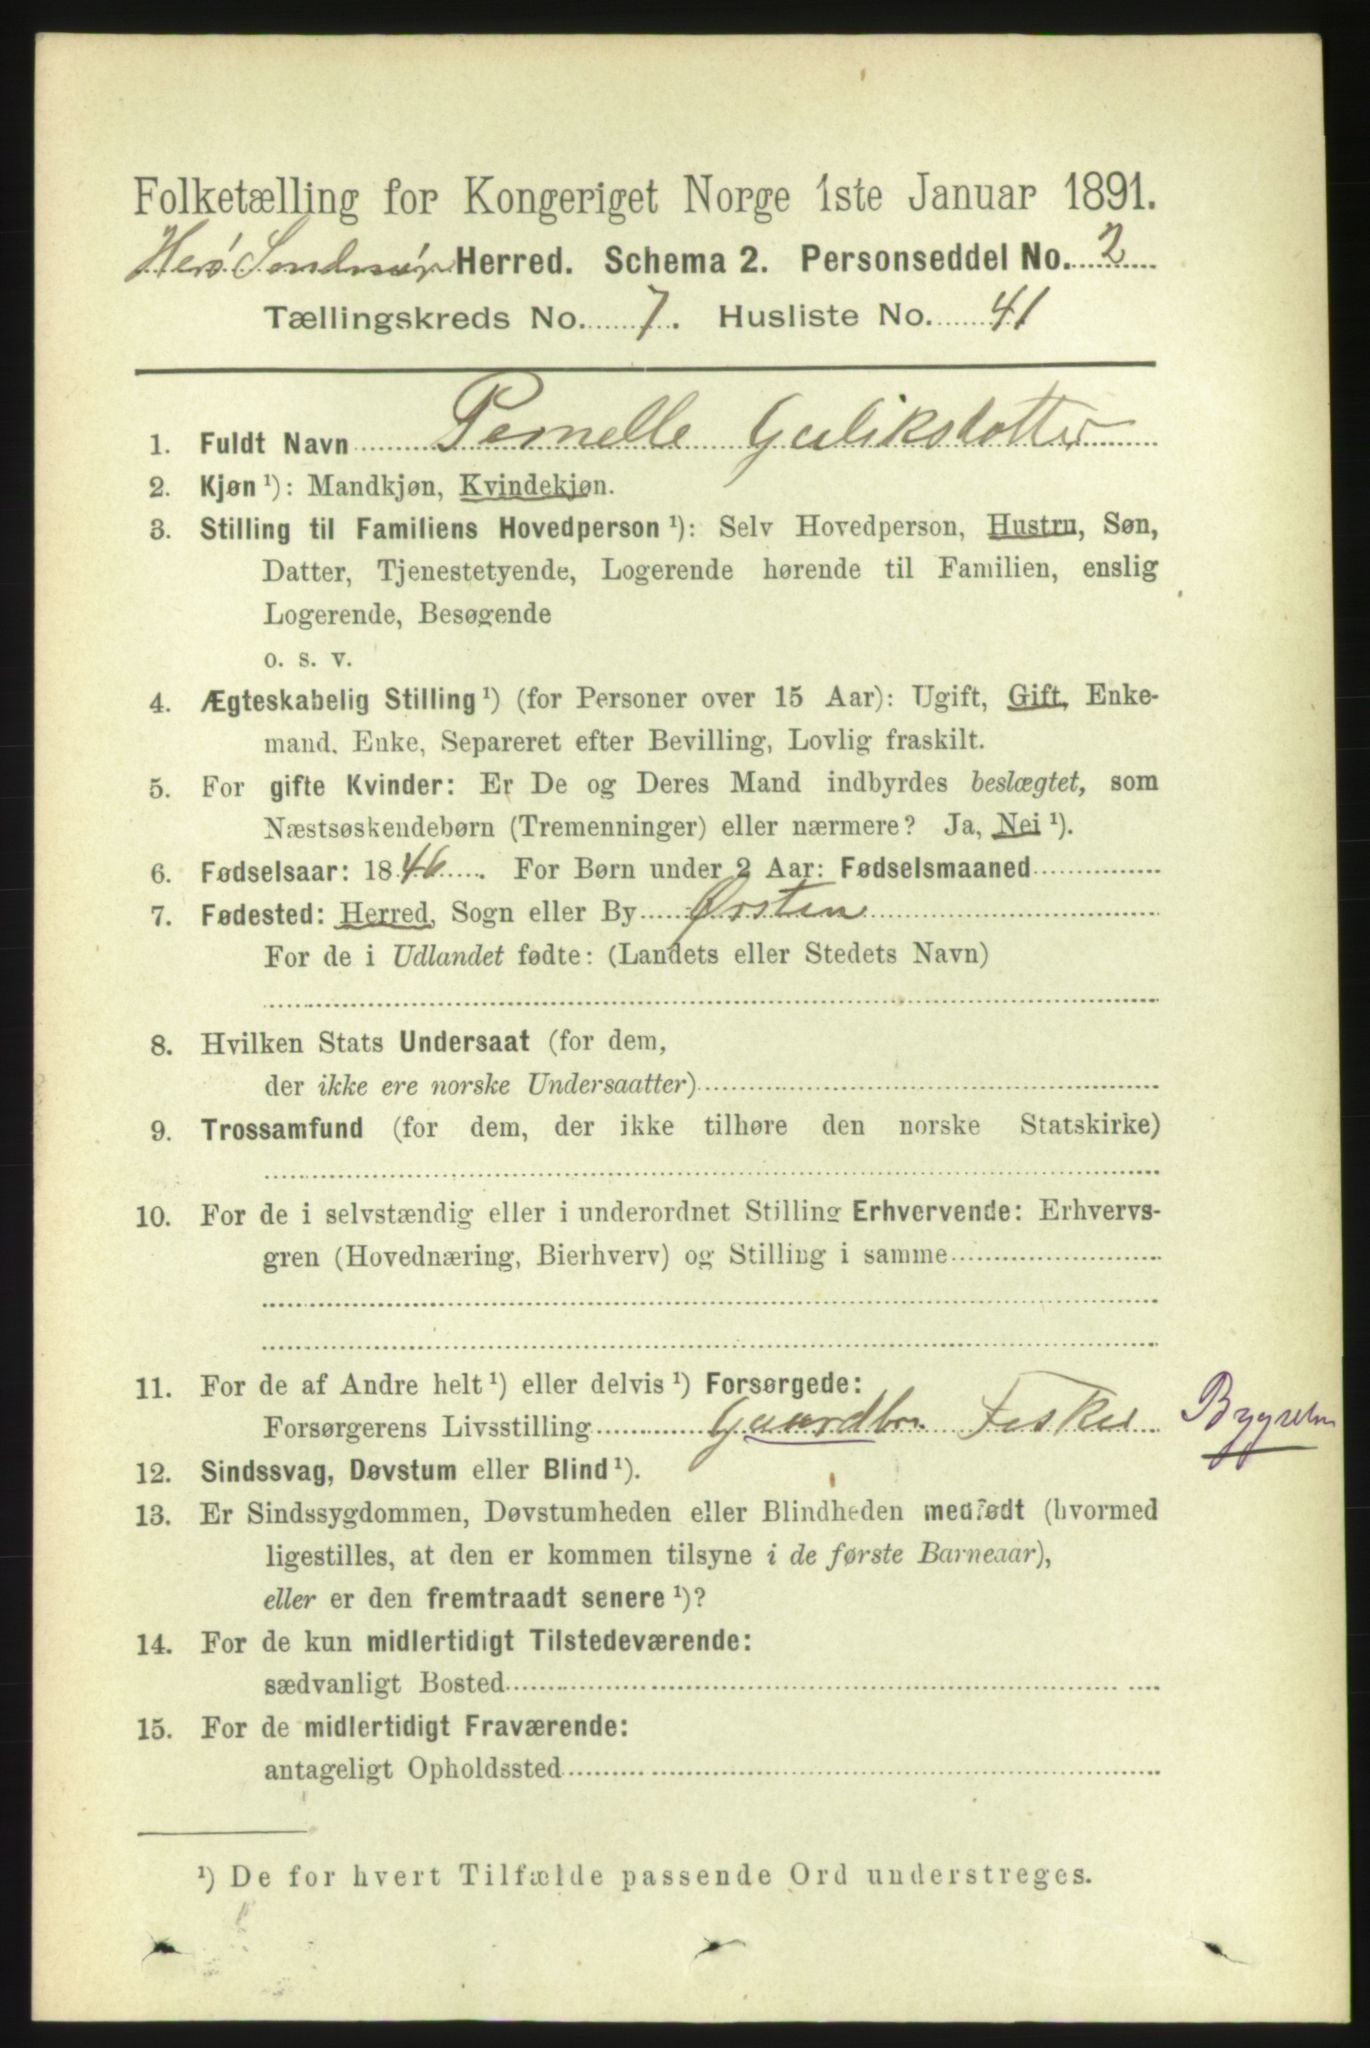 Folketælling for Kongeriget Norge 1ste Januar 1891.
Herø Søndmør Herred. Schema 2. Personseddel No. 2
Tællingskreds No. 7. Husliste No. 41
1. Fuldt Navn Pernelle Guliksdotter
2. Kjøn ¹): Mandkjøn, Kvindekjøn.
3. Stilling til Familiens Hovedperson ¹): Selv Hovedperson, Hustru, Søn,
Datter, Tjenestetyende, Logerende hørende til Familien, enslig
Logerende, Besøgende
o. s. v.
4. Ægteskabelig Stilling ¹) (for Personer over 15 Aar): Ugift, Gift, Enke-
mand, Enke, Separeret efter Bevilling, Lovlig fraskilt.
5. For gifte Kvinder: Er De og Deres Mand indbyrdes beslægtet, som
Næstsøskendebørn (Tremenninger) eller nærmere? Ja, Nei ¹).
6. Fødselsaar: 1846. For Børn under 2 Aar: Fødselsmaaned
7. Fødested: Herred, Sogn eller By Ørsten
For de i Udlandet fødte: (Landets eller Stedets Navn)
8. Hvilken Stats Undersaat (for dem,
der ikke ere norske Undersaatter)
9. Trossamfund (for dem, der ikke tilhøre den norske Statskirke)
10. For de i selvstændig eller i underordnet Stilling Erhvervende: Erhvervs-
gren (Hovednæring, Bierhverv) og Stilling i samme
11. For de af Andre helt ¹) eller delvis ¹) Forsørgede:
Forsørgerens Livsstilling Gaardbr. Fisker
12. Sindssvag, Døvstum eller Blind ¹).
13. Er Sindssygdommen, Døvstumheden eller Blindheden medfødt (hvormed
ligestilles, at den er kommen tilsyne i de første Barneaar),
eller er den fremtraadt senere ¹)?
14. For de kun midlertidigt Tilstedeværende:
sædvanligt Bosted
15. For de midlertidigt Fraværende:
antageligt Opholdssted
¹) De for hvert Tilfælde passende Ord understreges.